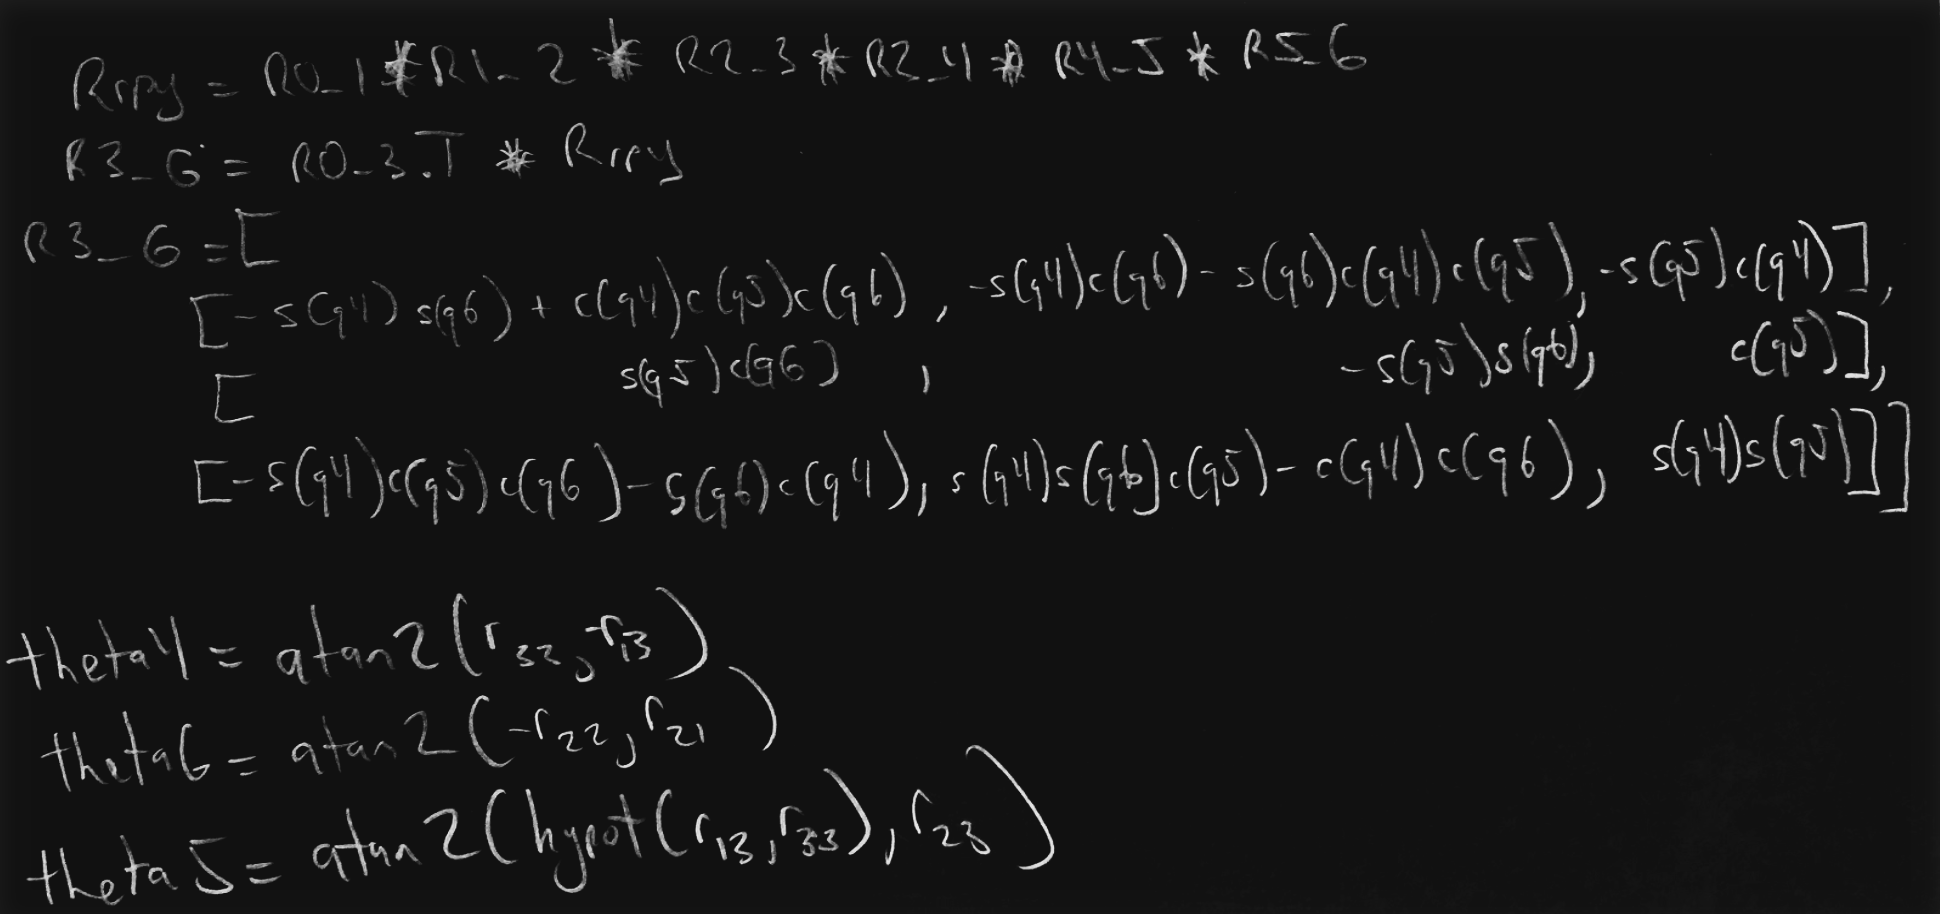 Rrpy = R0_1 * R1_2 * R2_3 * R3_4 * R4_5 * R5_6
R3_6 = R0_3.T * Rrpy
R3_6 = [
[-s(q4) s(q6) + c(q4)c(q5)c(q6), -s(q4)c(q6) - s(q6)c(q4)c(q5), -s(q5)c(q4)],
[ s(q5)c(q6) , -s(q5)s(q6), c(q5)],
[-s(q4)c(q5)c(q6) - s(q6)c(q4), s(q4)s(q6)c(q5) - c(q4)c(q6), s(q4)s(q5)]]
theta4 = atan2(r32, -r13)
theta6 = atan2(-r22, r21)
theta5 = atan2(hypot(r13, r33), r23)